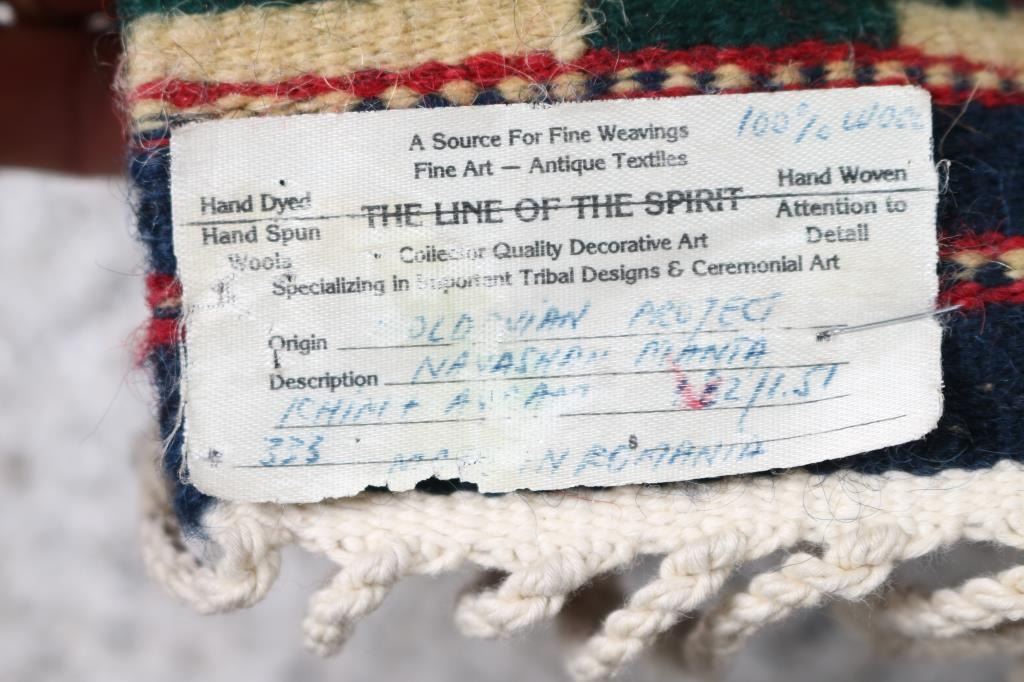 100% WOOL
A Source For Fine Weavings
Fine Art — Antique Textiles
Hand Dyed
Hand Spun
Wools
THE LINE OF THE SPIRIT
Hand Woven
Attention to
Detail
Collector Quality Decorative Art
Specializing in Important Tribal Designs & Ceremonial Art
Origin PROJECT
Description
323 IN ROMANIA